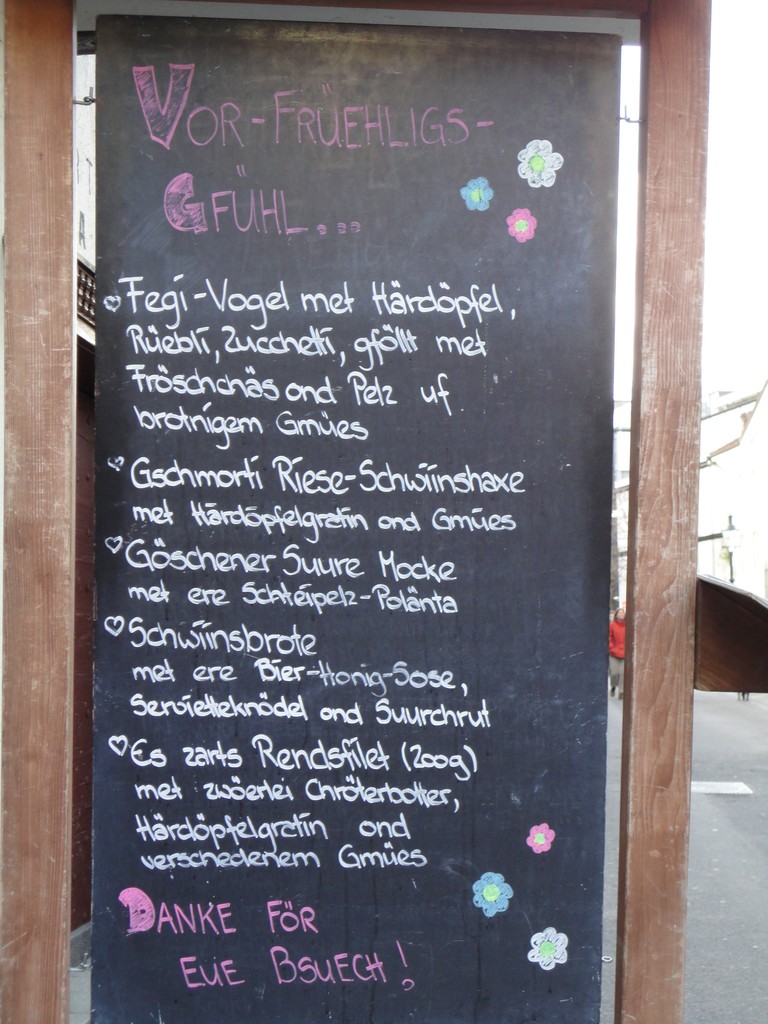 VOR-FRÜEHLIGS-
GFÜHL...
Fegi-Vogel met Härdöpfel,
Rüebli, Zucchetti, gföllt met
Fröschchäs ond Pelz uf
brotnigem Gmües
Gschmorti Riese-Schwiinshaxe
met Härdöpfelgratin ond Gmües
Göschener Suure Mocke
met ere Schteipelz-Polänta
Schwiinsbrote
met ere Bier-Honig-Sose,
Servietteknödel ond Suurchrut
Es zarts Rendsfilet (200g)
met zwöerlei Chröterbotter,
Härdöpfelgratin ond
verschedenem Gmües
DANKE FÖR
EUE BSUECH!